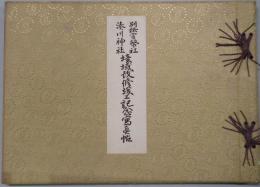 別格官幣社
湊川神社
境域改修竣工記念写真帖